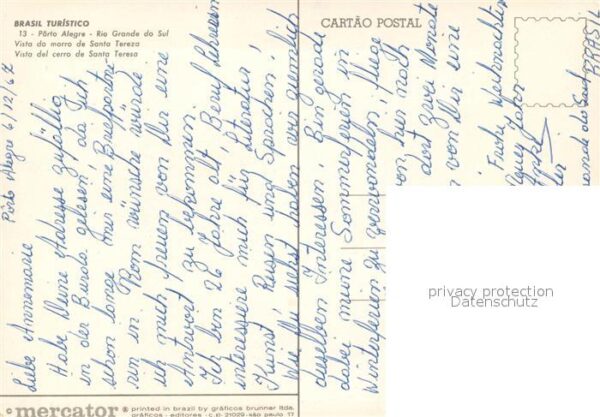 BRASIL TURÍSTICO
13 - Pôrto Alegre - Rio Grande do Sul
Vista do morro de Santa Tereza
Vista del cerro de Santa Teresa
CARTÃO POSTAL
Pôrto Alegre 6/12/67
Liebe Annemarie
Habe Deine Adresse zufällig
in der Burda gelesen, da ich
schon lange mir eine Briefpartne-
rin in Rom wünsche würde
ich mich freuen von Dir eine
Antwort zu bekommen.
Ich bin 26 Jahre alt, Beruf
interessiere mich für Literatur,
Kunst, Reisen und Sprachen.
Wie Du siehst haben wir ziemlich
dieselben Interessen. Bin gerade
dabei meine Sommerferien in
Winterferien zu verwandeln, fliege
von hier nach
dort zwei Monate
von Dir eine
Frohe Weihnachten
Jahr
Grande do Sul
BRASIL
privacy protection
Datenschutz
© mercator ® printed in brazil by gráficos brunner ltda.
gráficos - editores - c.p. 21029 - são paulo 17